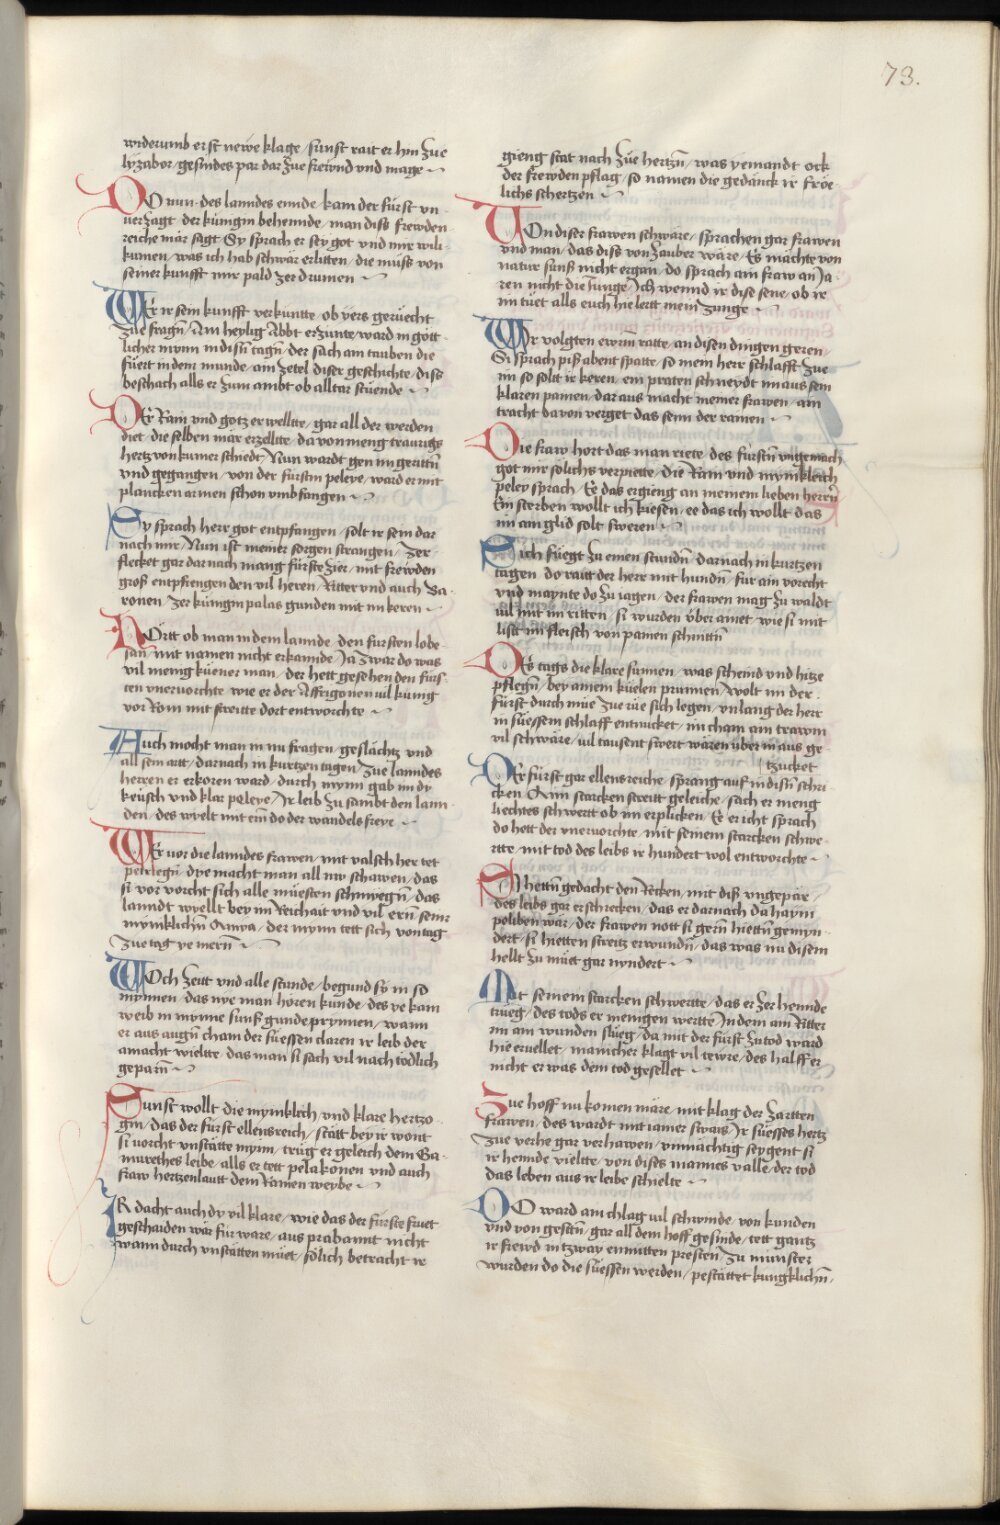 73.
widerumb erst newe klage / sunst rait er hin zue
lyzabor / gesindes par dar zue frewnd vnd mage
DO nun des lanndes ennde / kam der fürst vn
uerzagt / der künigin behennde / man diss frewden
reiche mär sagt Sy sprach er sey got vnd mir wili
kumen / was ich hab schwär erlitten / die müss von
seiner kunfft mir pald zerdrumen
WEr ir sein kunfft verkuntte / ob yers geruecht
zue fragn / Ain heylig Abbt erzunte / ward in gött
licher mynn in disn tagn / der sach ain tauben die
fuert in dem munde / ain zetel diser geschichte / diss
beschach alls er zum ambt ob alltar stuende
DEr kam vnd gotz er wellte / gar all der werden
diet / die selben mär erzellte / da von meng traurigs
hertz von kumer schiedt / Nun wardt gen im gerittn
vnd gegangen / von der fürstin peleye / ward er mit
plancken armen schon vmbfangen
Sy sprach herr got entpfangen / solt ir sein dar
nach mir / Nun ist meiner sorgen strangen / zer
flecket gar darnach manig fürste zier / mit frewden
groß entpfiengen den vil heren / Ritter vnd auch Ba
ronen / zer künigin palas gunden mit im keren
NOrtt ob man in dem lannde / den fürsten lobe
san / mit namen nicht erkannde / Ja zwar do was
vil menig küener man / der hett gesehen den fürs
ten vneruorchte / wie er der Affrigonen vil küng
vor Rom mit streitte dort entworchte
Auch mocht man in nu fragen / geslächtz vnd
all sein artt / darnach in kurtzen tagen / zue lanndes
herren er erkoren ward / durch mynn gab im dy
keusch vnd klar peleye / Ir leib zu sambt den lann
den / des wyelt mit ein do der wandels freye
WEr vor die lanndes frawen / mit valsch her tet
pehlegn / dye macht man all nw schawen / das
si vor vorcht sich alle müesten schmiegn / das
lanndt wyellt bey im Reichait vnd vil ern / seinr
mynniklichn Amya / der mynn tett sich von tag
zue tag ye mern
WOch zeitt vnd alle stunde / begund sy in so
mynnen / das nye man hören kunde / des ye kam
weib in mynne sunst gunde prynnen / wann
er aus augn cham der süessen claren ir leib der
amacht wieltte / das man si sach vil nach tödlich
geparn
Sunst wollt die mynklich / vnd klare hertzo
gin / das der fürst ellensreich / stätt bey ir wont
si uorcht vnstätte mynn / trüg er geleich dem Ga
murethes leibe / alls er tett pelakonen vnd auch
fraw hertzenlautt dem Ramen weybe
IR dacht auch dy vil klare / wie das der fürste fruet
geschaiden wär für ware / aus prabannt nicht
wann durch vnstätten müet / solich betracht ir
gieng stat nach zue hertzn / was yemandt ock
der frewden pflag / so namen die gedänck ir fröe
lichs schertzen
VOn diser frawen schwäre / sprachen gar frawen
vnd man / das diss von zauber wäre / Es mächte von
natur sunst nicht ergan / do sprach ain fraw an Ja
ren nicht die Iunge / Ich wennd ir dise sene / ob ir
im tüet alls euch hie lertt mein zunge
WIr volgten ewrm ratte / an disen dingen geren
Si sprach piß abent spatte / so mein herr schlafft zue
im so sollt ir keren / ein praten schneydt im aus sein
klaren painen / dar aus macht meiner frawen / ain
tracht davon verget das senn der rainen
Die fraw hort das man riete / des fürstn vngemach
got mir solichs verpiette / die Rain vnd mynikleich
peley sprach / Ee das ergieng an meinem lieben herrn
Ein sterben wollt ich kiesen / ee das ich wollt das
im ain glid solt sweren
Sich füegt zu einen stundn / darnach in kurtzen
tagen / do raitt der here mit hundn / für ain vorecht
vnd maynte do zu iagen / der frawen mag zu waldt
vil mit im ritten / si wurden über ainet / wie si mit
listt im fleisch von painen schnittn
DEs tags die klare sunnen / was scheind vnd hitze
pflegn / bey ainem küelen prunnen / wolt im der
fürst durch müe zue rüe sich legen / vnlang der herr
in süessem schlaff entnucket / im cham ain trawm
vil schwäre / vil tausent swert wären über in aus ge
tzucket
DEr fürst gar ellensreiche / sprang auf in disn schri
cken / Aim starcken streitt geleiche / sach er meng
liechtes schwertt ob im erplicken / Ee er icht sprach
do hett der vneruorchte / mit seinem starcken schwe
rtte / mit tod des leibs ir hundert wol entworchte
SI hettn gedacht den Recken / mit diß vngepäre /
des leibs gar erschrecken / das er darnach da haym
peliben wär / der frawen nott si gern hiettn gemyn
dert / si hietten streitz erwundn / das was nu disem
hellt zu müet gar nyndert
Mit seinem starcken schwertte / das er zer hennde
trüeg / des tods er menigen wertte / Indem ain Ritter
im ain wunden slüeg / da mit der fürst zu tod ward
hie eruellet / manicher klagt vil tewre / des halff er
nicht er was dem tod gesellet
Zue hoff nu komen märe / mit klag der zartten
frawen / des wardt mit iamer swärs / Ir süesses hertz
zue verhe gar verhawen / vnmächtig seygent si
ir hennde vieltte / von dises mannes valle / der tod
das leben aus ir leibe schielte
DO ward ain chlag vil schwinde / von kunden
vnd von gestn / gar all dem hoff gesinde / tett gantz
ir frewd in tzway enmitten presten / zu münster
wurden do die süessen werden / pestattet kungklichn /